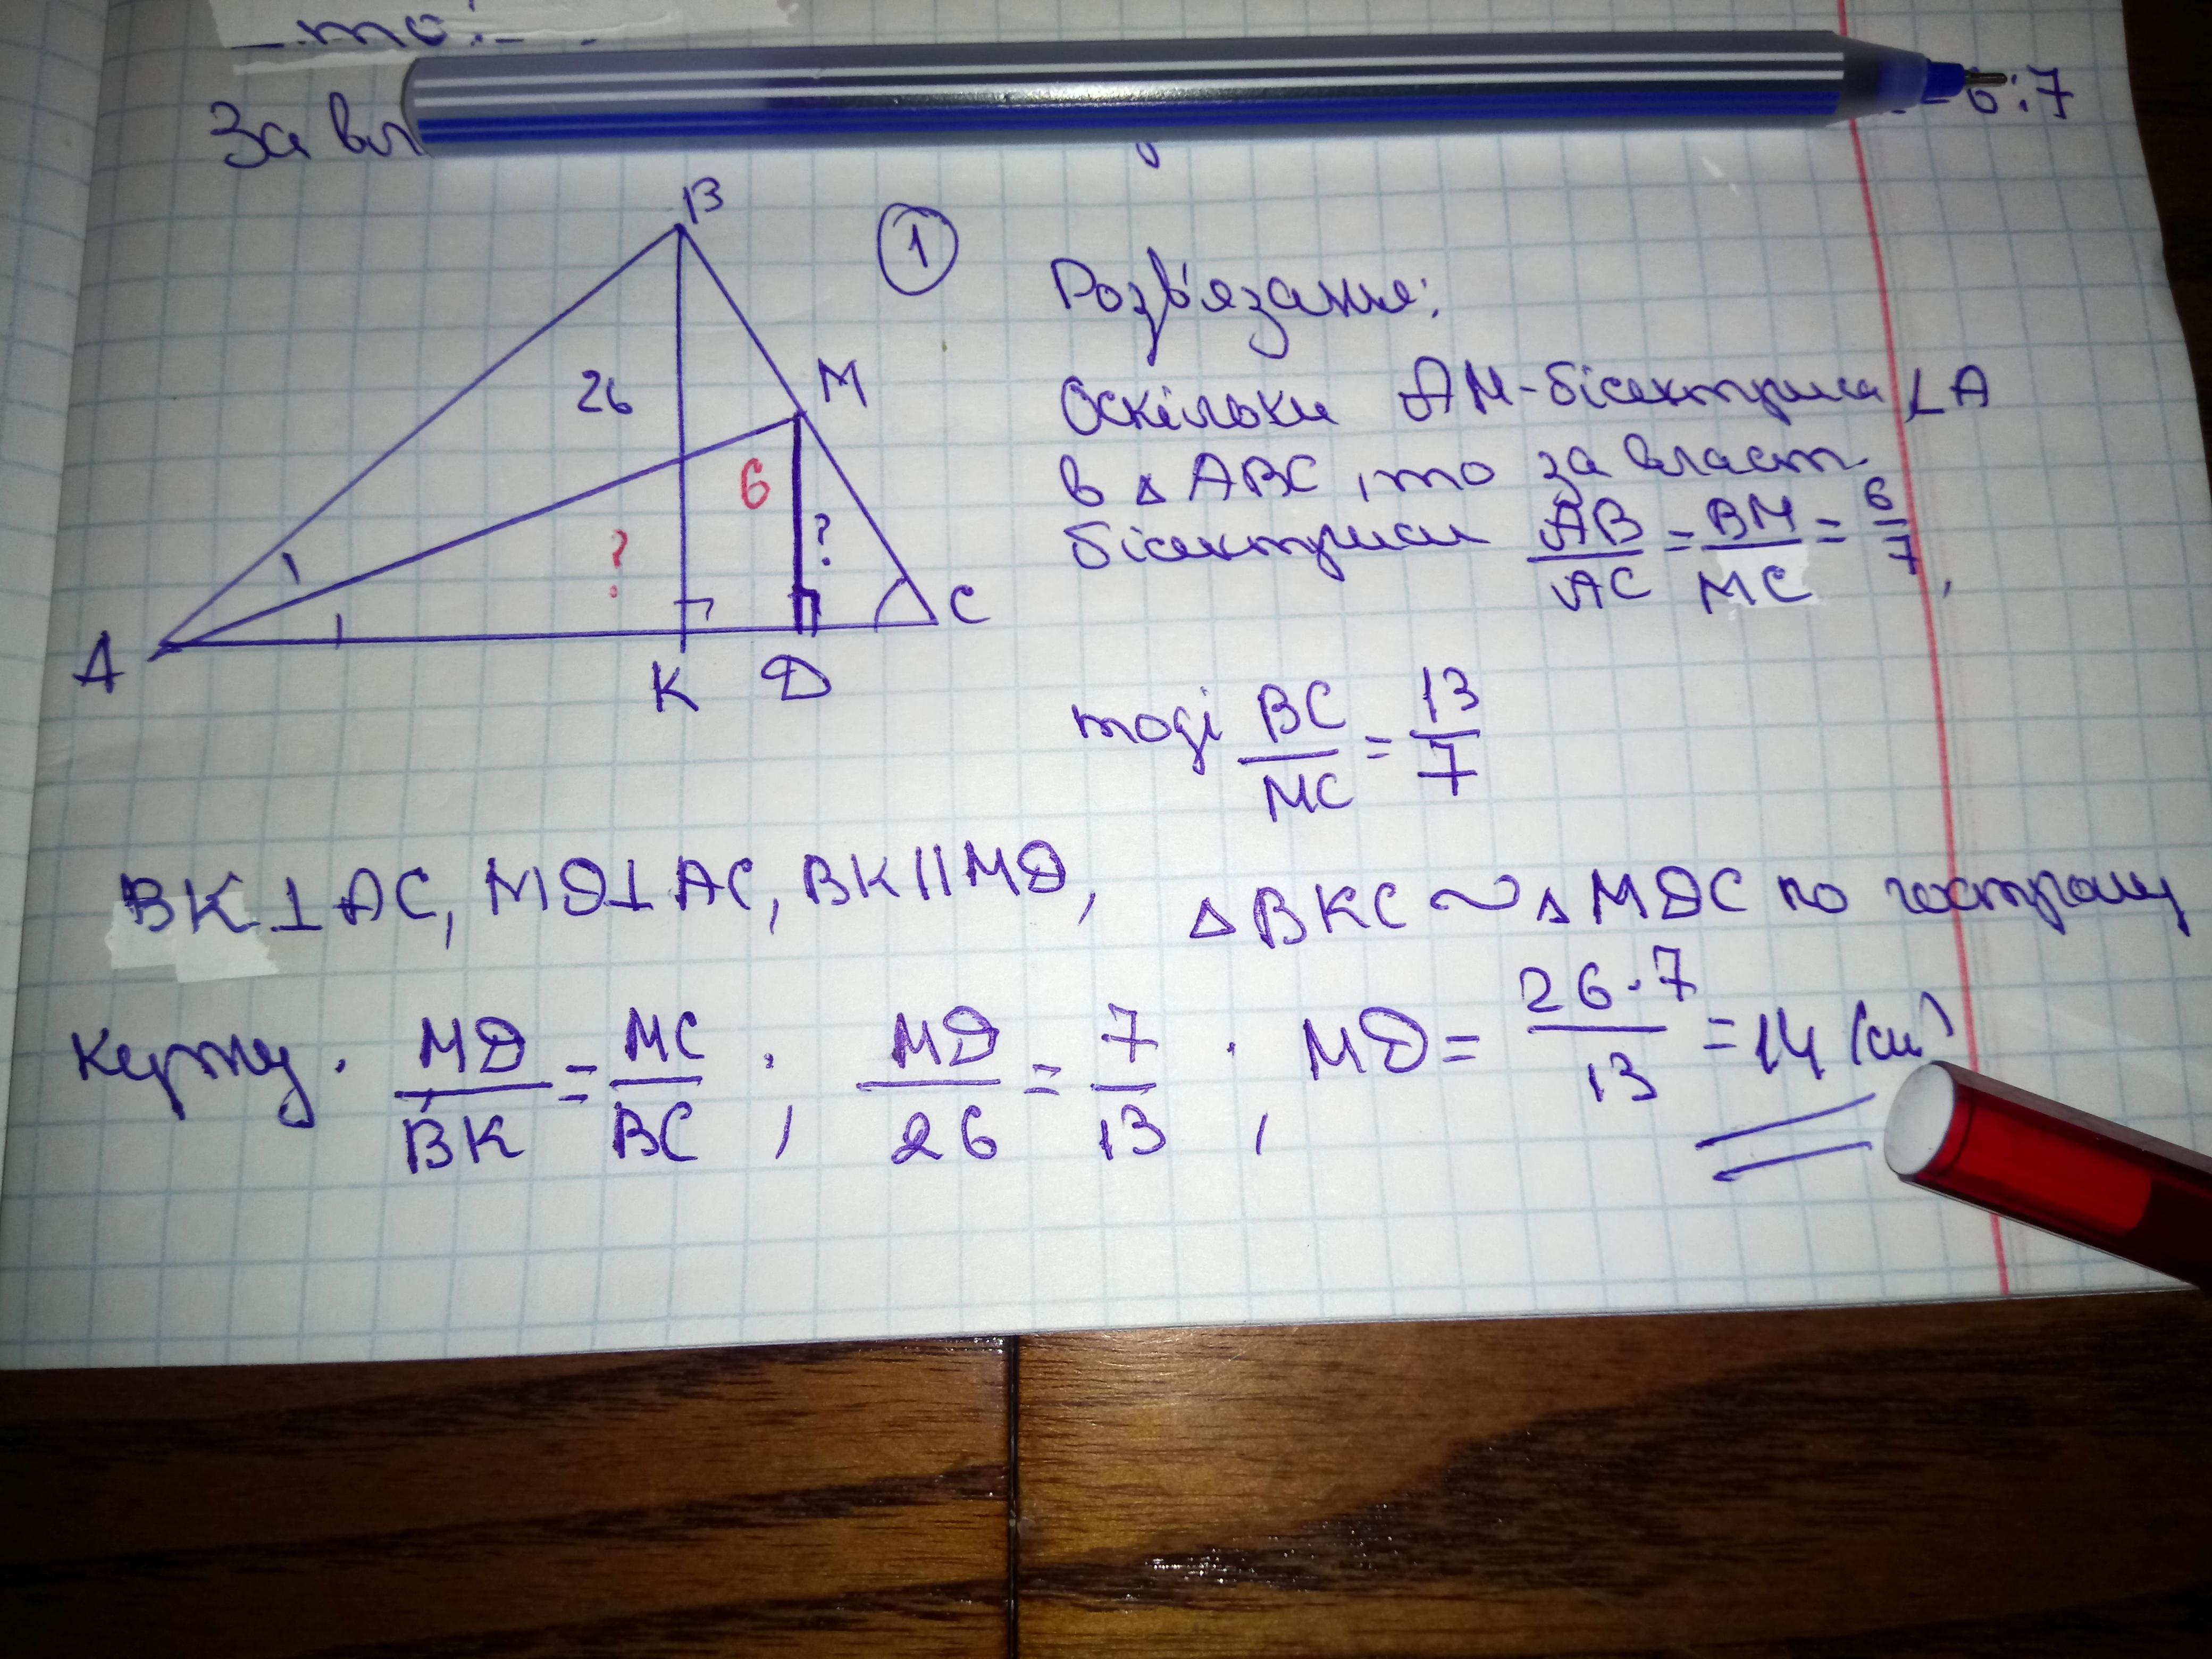 то:
За вл
6:7
B
1
Розв'язання:
26
M
Оскільки AM-бісектриса ∠A
6
в △ABC, то за власт.
?
?
бісектриси AB/AC = BM/MC = 6/7,
A
C
K
D
тоді BC/MC = 13/7
BK⊥AC, MD⊥AC, BK||MD, △BKC ~ △MDC по гострому
куту. MD/BK = MC/BC; MD/26 = 7/13; MD = 26·7/13 = 14 (см)